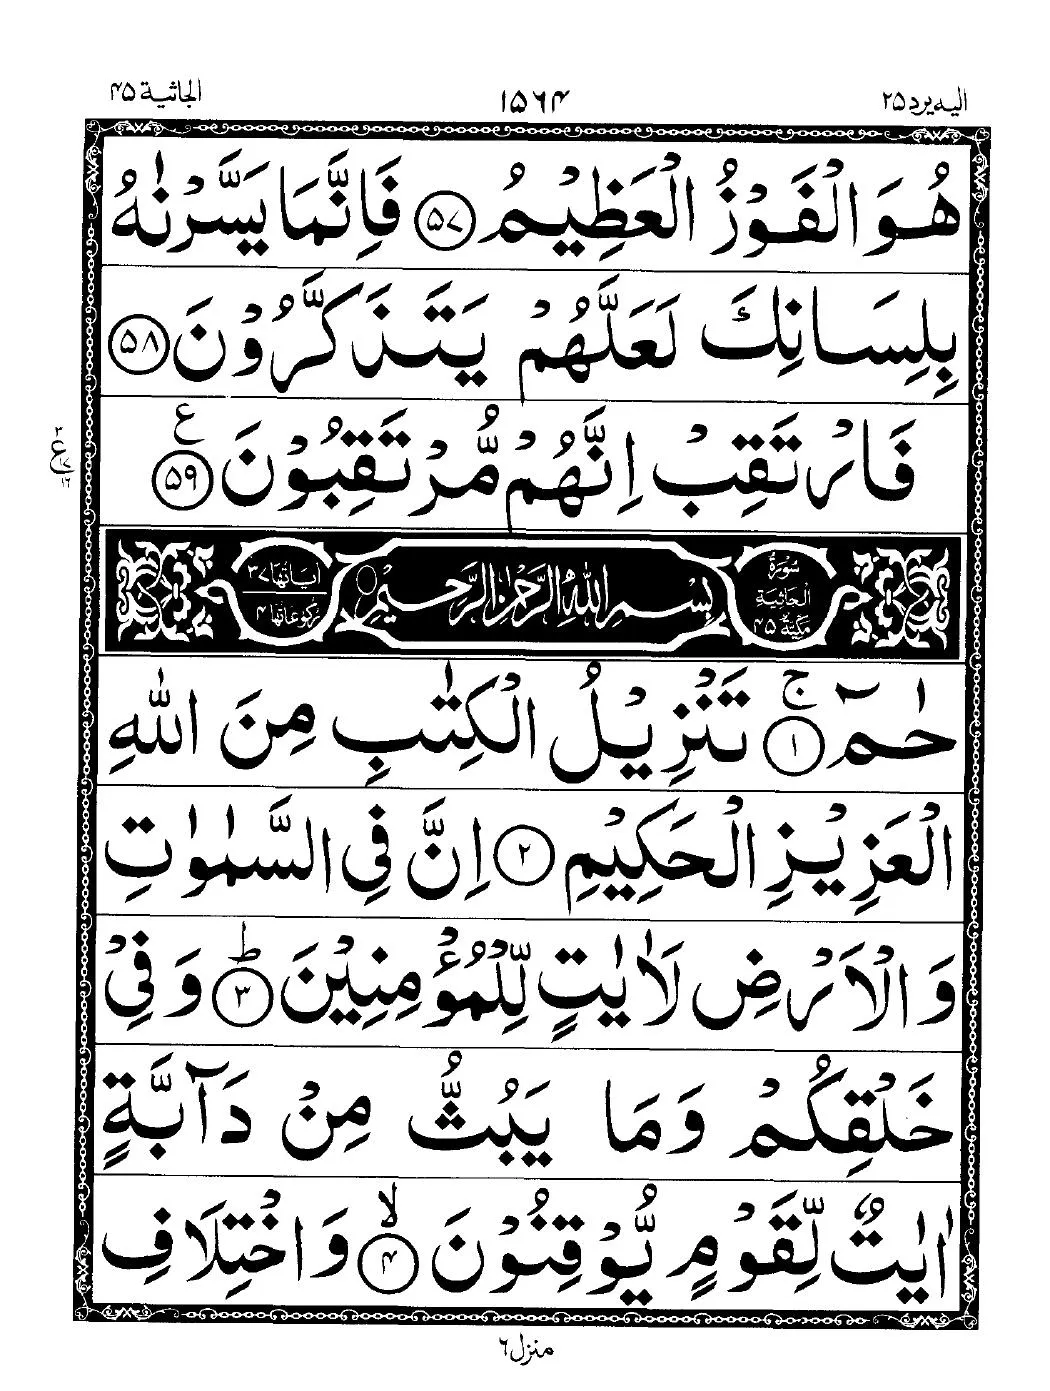 الیه یرد ۲۵
۱۵۶۴
الجاثیة ۴۵
هُوَ الْفَوْزُ الْعَظِيْمُ ﴿۵۷﴾ فَاِنَّمَا يَسَّرْنٰهُ
بِلِسَانِكَ لَعَلَّهُمْ يَتَذَكَّرُوْنَ ﴿۵۸﴾
فَارْتَقِبْ اِنَّهُمْ مُّرْتَقِبُوْنَ ﴿۵۹﴾ ع
۲
ع
۱۷
۱۶
سورة
الجاثیة
مکیة ۴۵
بِسْمِ اللّٰهِ الرَّحْمٰنِ الرَّحِيْمِ
اٰیاتها ۳۷
رکوعاتها ۴
حٰمٓ ﴿۱﴾ۚ تَنْزِيْلُ الْكِتٰبِ مِنَ اللّٰهِ
الْعَزِيْزِ الْحَكِيْمِ ﴿۲﴾ اِنَّ فِي السَّمٰوٰتِ
وَالْاَرْضِ لَاٰيٰتٍ لِّلْمُؤْمِنِيْنَ ﴿۳﴾ؕ وَفِيْ
خَلْقِكُمْ وَمَا يَبُثُّ مِنْ دَآبَّةٍ
اٰيٰتٌ لِّقَوْمٍ يُّوْقِنُوْنَ ﴿۴﴾ۙ وَاخْتِلَافِ
منزل ۶